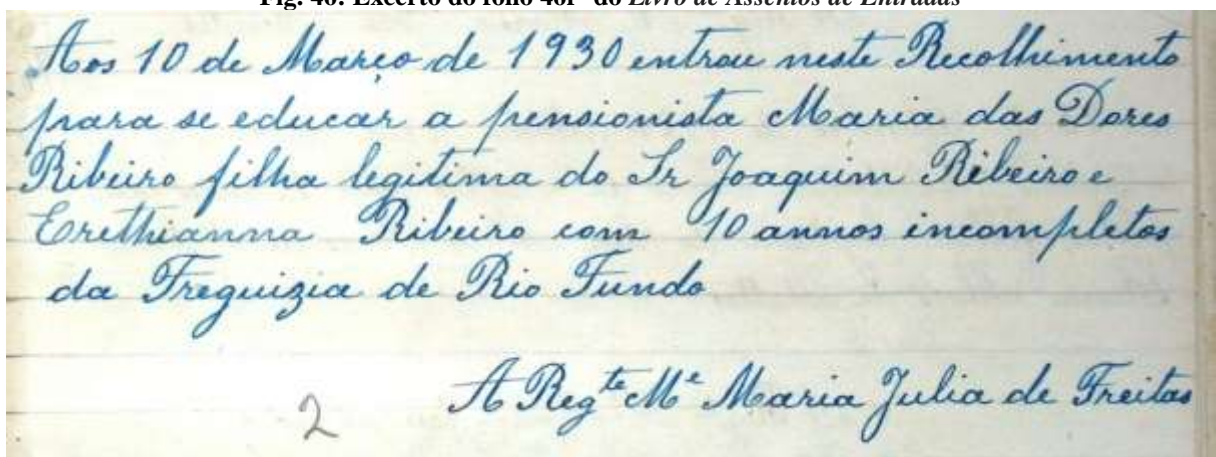 Fig. 40: Excerto do fólio 46r° do Livro de Assentos de Entradas
Aos 10 de Março de 1930 entrou neste Recolhimento
para se educar a pensionista Maria das Dores
Ribeiro filha legitima do Sr Joaquim Ribeiro e
Erethianna Ribeiro com 10 annos incompletos
da Freguizia de Rio Fundo
A Reg.te M.e Maria Julia de Freitas
2